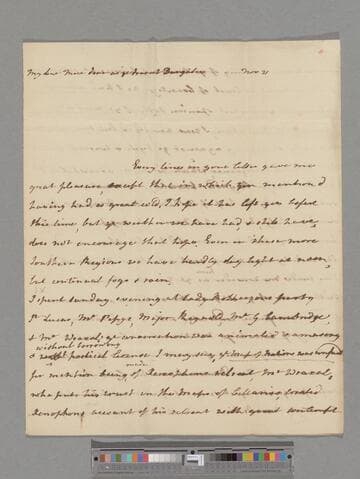 My dear Dear Daughter Nov 21
Every line in your letter gave me
great pleasure, except that in which you mention'd
having had so great cold, I hope it has left you before
this time, but ye weather we have had & still have,
does not encourage that hope. Even in these more
Southern Regions we have hardly day light at noon,
but continual fogs & rain.
I spent sunday evening at Lady party
Mr Pepys, Major Mr G. Cambridge
& Mr ye conversation was animated & amusing
without borrowing
& poetical License I may say ye of Nations was
for mention being made of Xenophons retreat, Mr
who puts his trust in the Maps of treated
Xenophons account of his retreat with great contempt